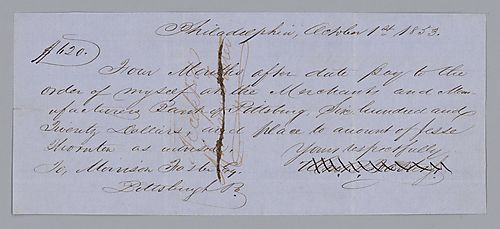 Philadelphia, October 1st, 1853.
$620.
Four Months after date pay to the
order of myself at the Merchants and Man-
ufacturers Bank of Pittsburg, Six hundred and
Twenty Dollars, and place to amount of Jesse
Thornton as
Yours respectfully
To, Morrison
Pittsburgh Pa.